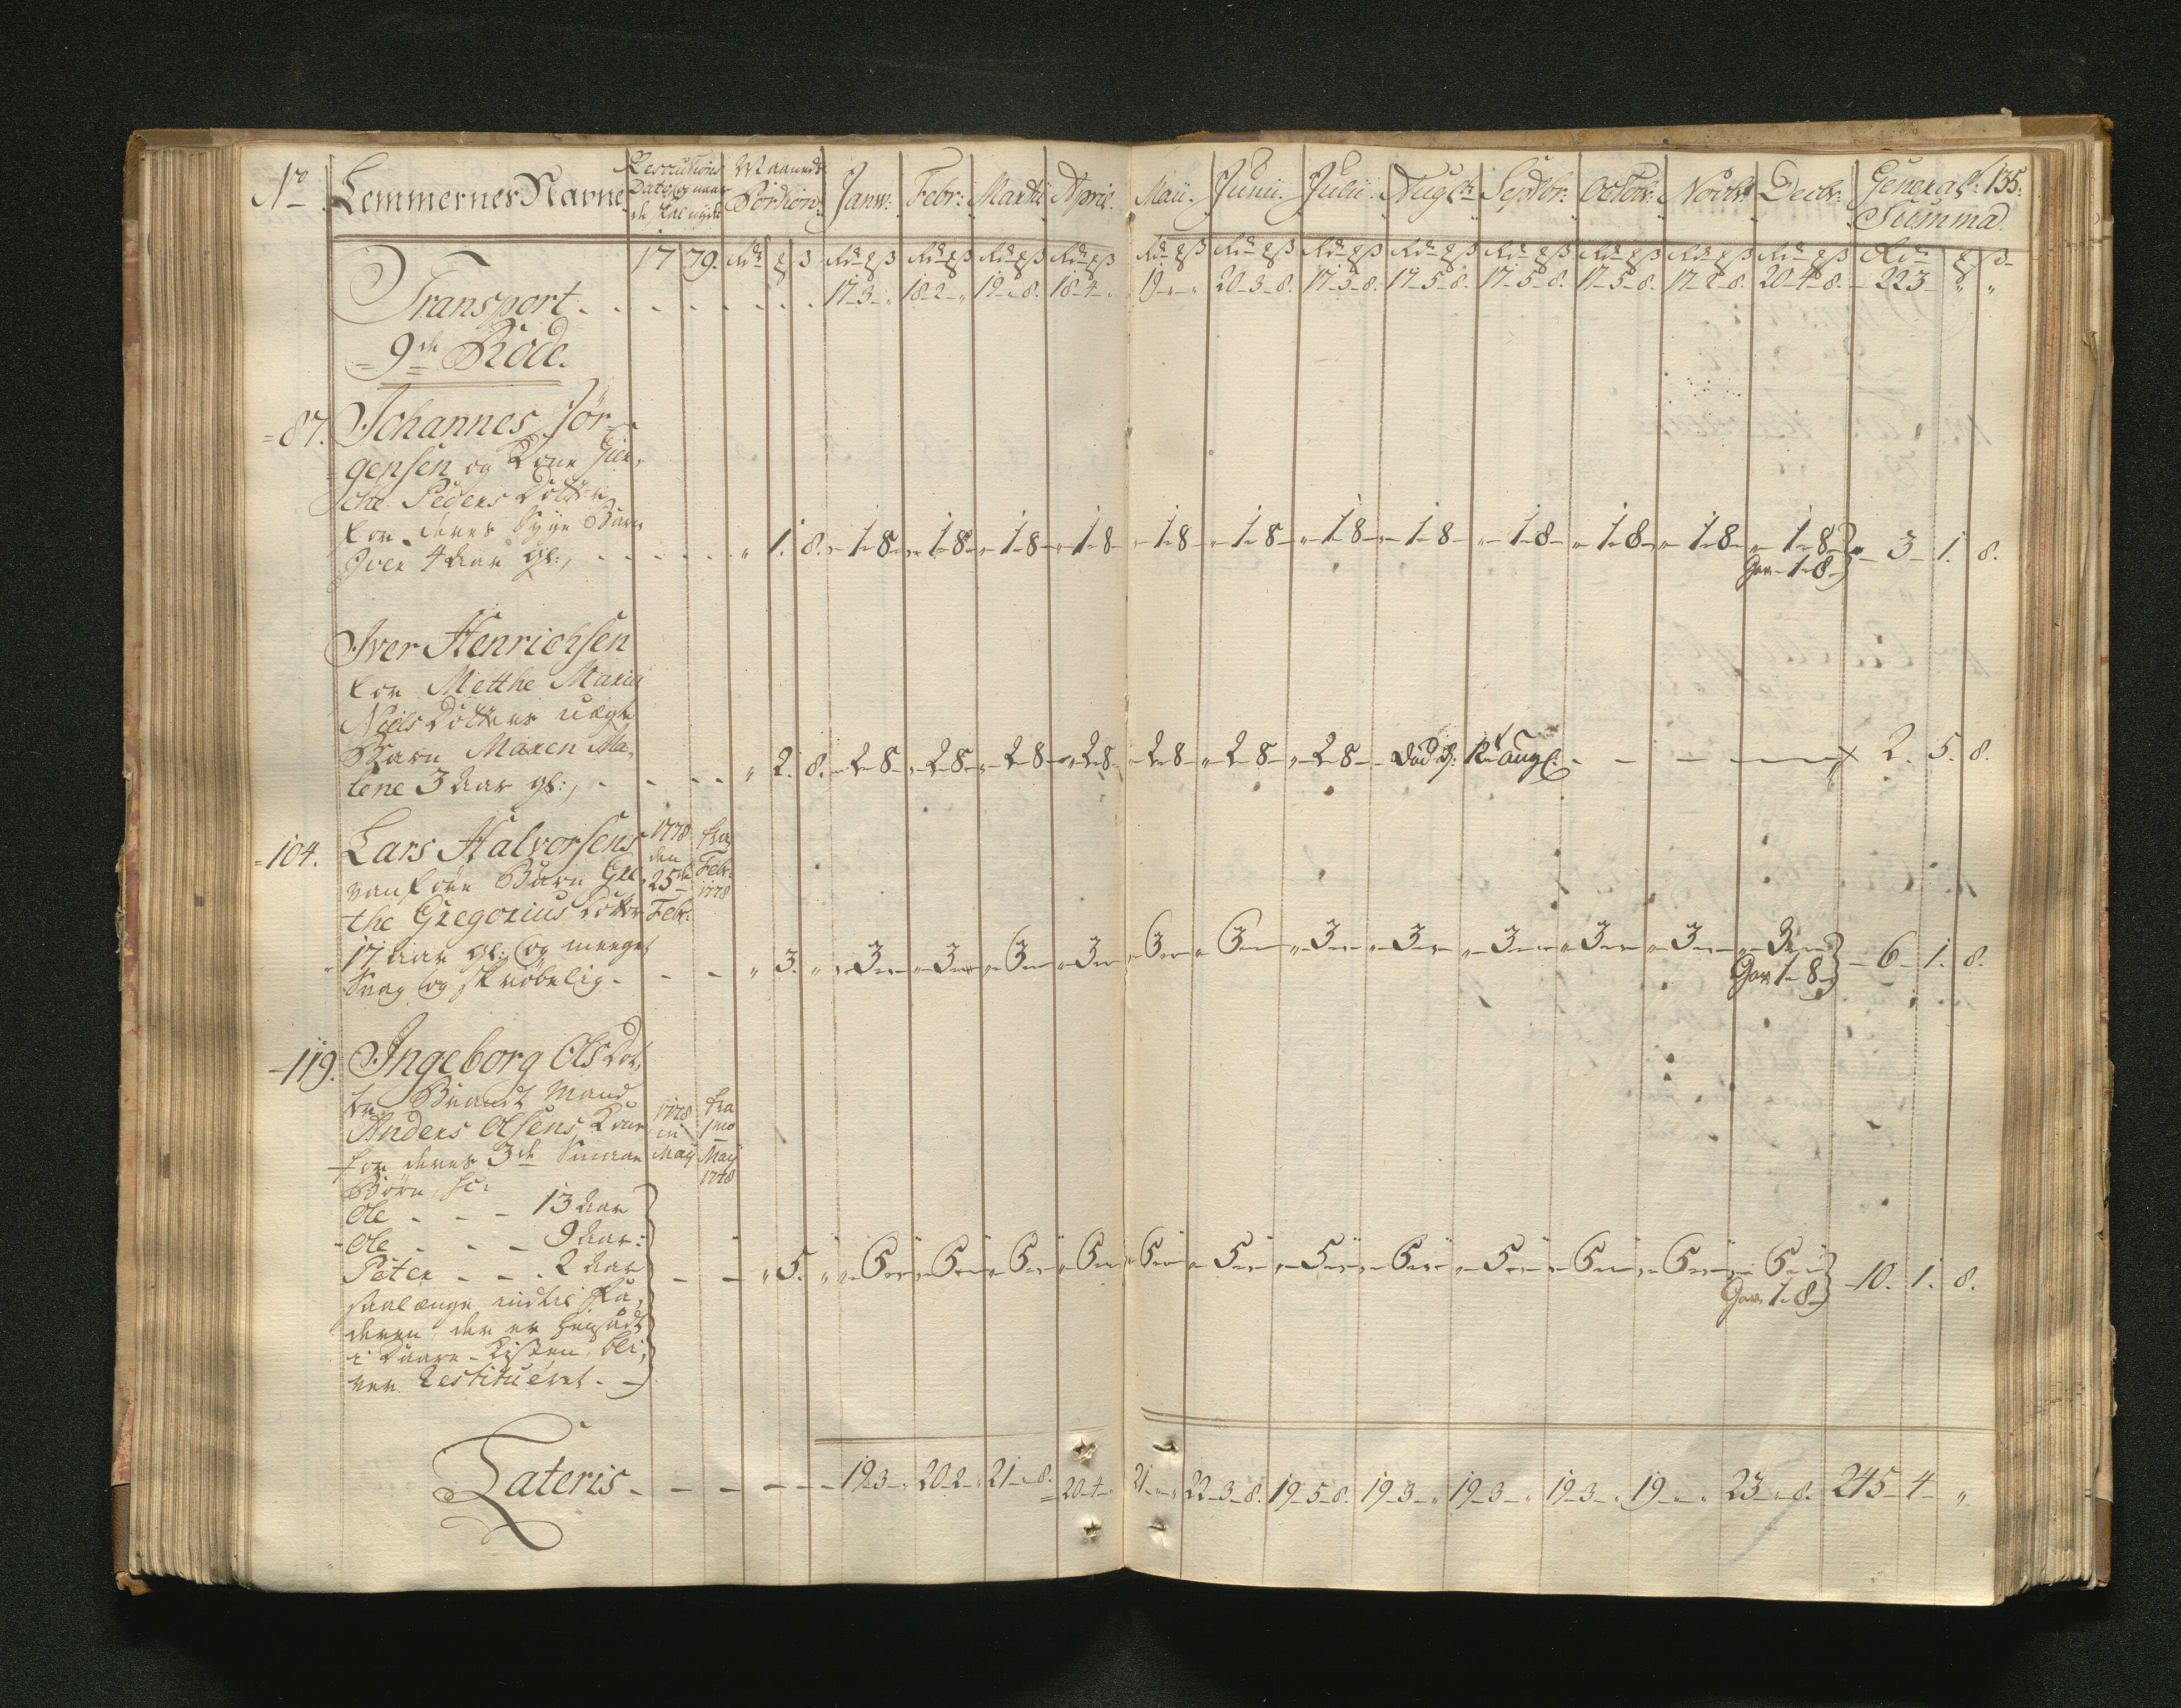 No Lemmernes Navne Resolutions Dato og naar de skal nyde Maaneds Portion Janu: Febr: Martii April. Maii. Junii. Julii. Augt: Septbr: Octobr: Novbr: Decbr: General Summa. 135.
1779. Rdr ß Rdr ß Rdr ß Rdr ß Rdr ß Rdr ß Rdr ß Rdr ß Rdr ß Rdr ß Rdr ß Rdr ß Rdr ß Rdr ß
Transport 17-3-" 18-2-" 19-"-8. 18-4-" 19-"-" 20-3-8. 17-5-8. 17-5-8. 17-5-8. 17-5-8. 17-2-8. 20-4-8. 223 " "
9de Rode.
87. Johannes Jør-
gensen og Kone
Peders Dotter
for deres Syge Barn
Iver 4 Aar gl:, " 1. 8. 1-8 1-8 1-8 1-8 1-8 1-8 1-8 1-8 1-8 1-8 1-8 1-8 3 1. 8.
1-8
Iver Henrichsen
for Metthe Maria
Niels Dotters uægte
Barn Maren Ma-
lene 3 Aar gl:, " 2. 8. 2-8 2-8 2-8 2-8 2-8 2-8 2-8 Död d: 12t Aug: 2. 5. 8.
104. Lars Halvorsens 1778 fra
vanföre Barn Gre- den 25de Febr:
the Gregorius Dotter Febr: 1778
17 Aar gl: og meeget
Svag og skrøbelig " 3. " 3 3 3 3 3 3 3 3 3 3 3 3 6 1. 8.
1-8
119. Ingeborg Ols Dot-
ter Brandt Mand
Anders Olsens Kone 1778 fra
for deres 3de Smaae in Maij 1mo Maij
Børn, sc: 1778
Ole 13 Aar
Ole 9 Aar
Peter 2 Aar " 5. " 5 5 5 5 5 5 5 5 5 5 5 5 10. 1. 8.
1-8
saalænge indtil Fa-
deren, der er hensadt
i Daare-Kisten, bli-
ver Restitueret
Lateris 19-3-" 20-2-" 21-"-8. 20-4-" 21-"-" 22-3-8. 19-5-8. 19-3-" 19-3-" 19-3-" 19-"-" 23-"-8. 245-4-"